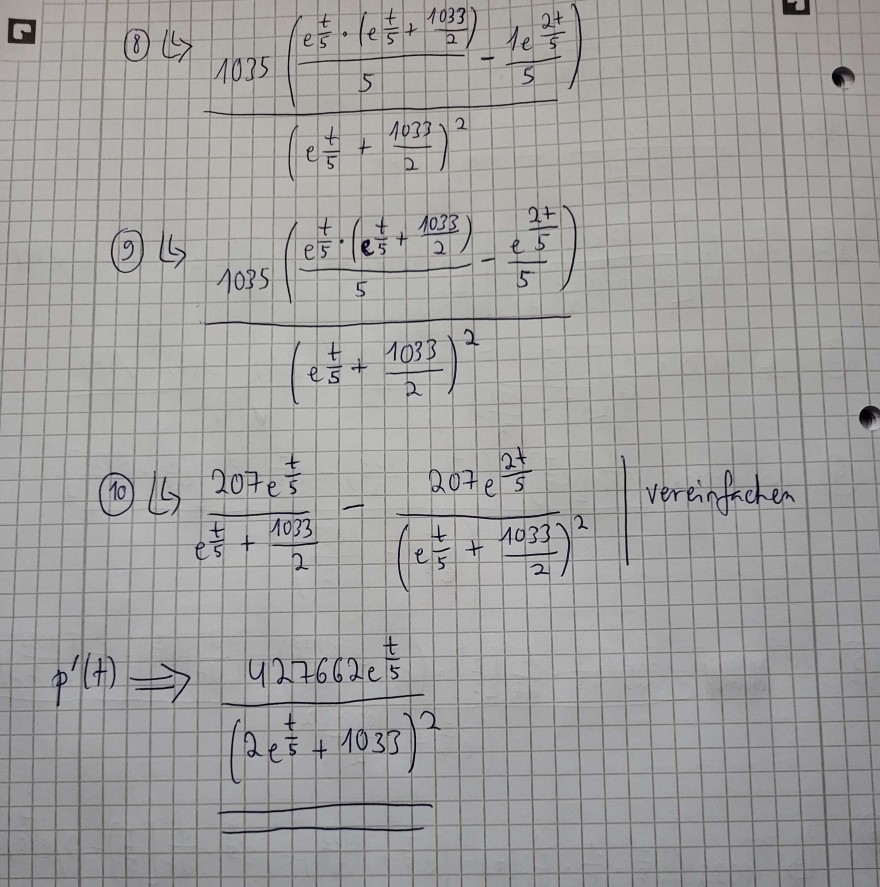 ⑧ ↳ \frac{1035 \left( \frac{e^{\frac{t}{5}} \cdot \left( e^{\frac{t}{5}} + \frac{1033}{2} \right)}{5} - \frac{1e^{\frac{2t}{5}}}{5} \right)}{\left( e^{\frac{t}{5}} + \frac{1033}{2} \right)^2}
⑨ ↳ \frac{1035 \left( \frac{e^{\frac{t}{5}} \cdot \left( e^{\frac{t}{5}} + \frac{1033}{2} \right)}{5} - \frac{e^{\frac{2t}{5}}}{5} \right)}{\left( e^{\frac{t}{5}} + \frac{1033}{2} \right)^2}
⑩ ↳ \frac{207e^{\frac{t}{5}}}{e^{\frac{t}{5}} + \frac{1033}{2}} - \frac{207e^{\frac{2t}{5}}}{\left( e^{\frac{t}{5}} + \frac{1033}{2} \right)^2} | vereinfachen
p'(t) ⟹ \frac{427662e^{\frac{t}{5}}}{\left( 2e^{\frac{t}{5}} + 1033 \right)^2}